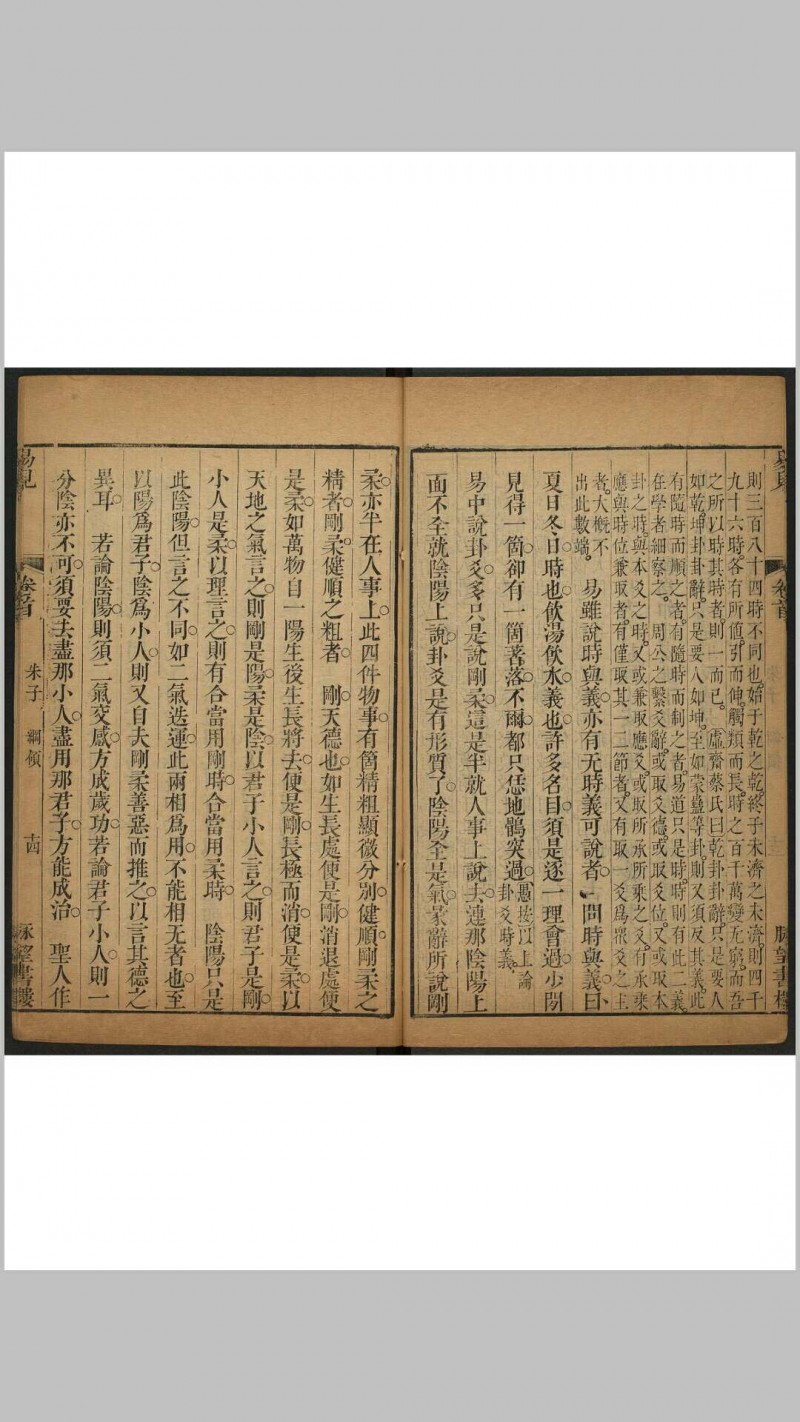 則三百八十四時不同也始于乾之乾終于未濟之未濟則四千
九十六時各有所值引而伸觸類而長時之百千萬變无窮而吾
之所以時其時者則一而已。虛齋蔡氏曰乾卦卦辭只是要人
如乾坤卦卦辭只是要人如坤至如蒙蠱等卦則又須反其義此
有隨時而順之者有隨時而制之者易道只是時時則有此二義
在學者細察之。周公之繫爻辭或取爻德或取爻位又或取本
卦之時與本爻之時又或兼取應爻或取所承所乘之爻有承乘
應與時位兼取者有僅取其一二節者又有取一爻爲衆爻之主
者大槪不
出此數端。
易雖說時與義亦有无時義可說者 問時與義曰
夏日冬日時也飮湯飮水義也許多名目須是逐一理會過少間
見得一箇卻有一箇著落不爾都只恁地鶻突過愚按以上論
卦爻時義
易中說卦爻多只是說剛柔這是半就人事上說去連那陰陽上
面不全就陰陽上說卦爻是有形質了陰陽全是氣彖辭所說剛
易見
卷首
朱子 綱領
柔亦半在人事上此四件物事有箇精粗顯微分別健順剛柔之
精者剛柔健順之粗者 剛天德也如生長處便是剛消退處便
是柔如萬物自一陽生後生長將去便是剛長極而消便是柔以
天地之氣言之則剛是陽柔是陰以君子小人言之則君子是剛
小人是柔以理言之則有合當用剛時合當用柔時 陰陽只是
此陰陽但言之不同如二氣迭運此兩相爲用不能相无者也至
以陽爲君子陰爲小人則又自夫剛柔善惡而推之以言其德之
異耳 若論陰陽則須二氣交感方成歲功若論君子小人則一
分陰亦不可須要去盡那小人盡用那君子方能成治 聖人作
易見
卷首
朱子 綱領
十四
詠望書樓